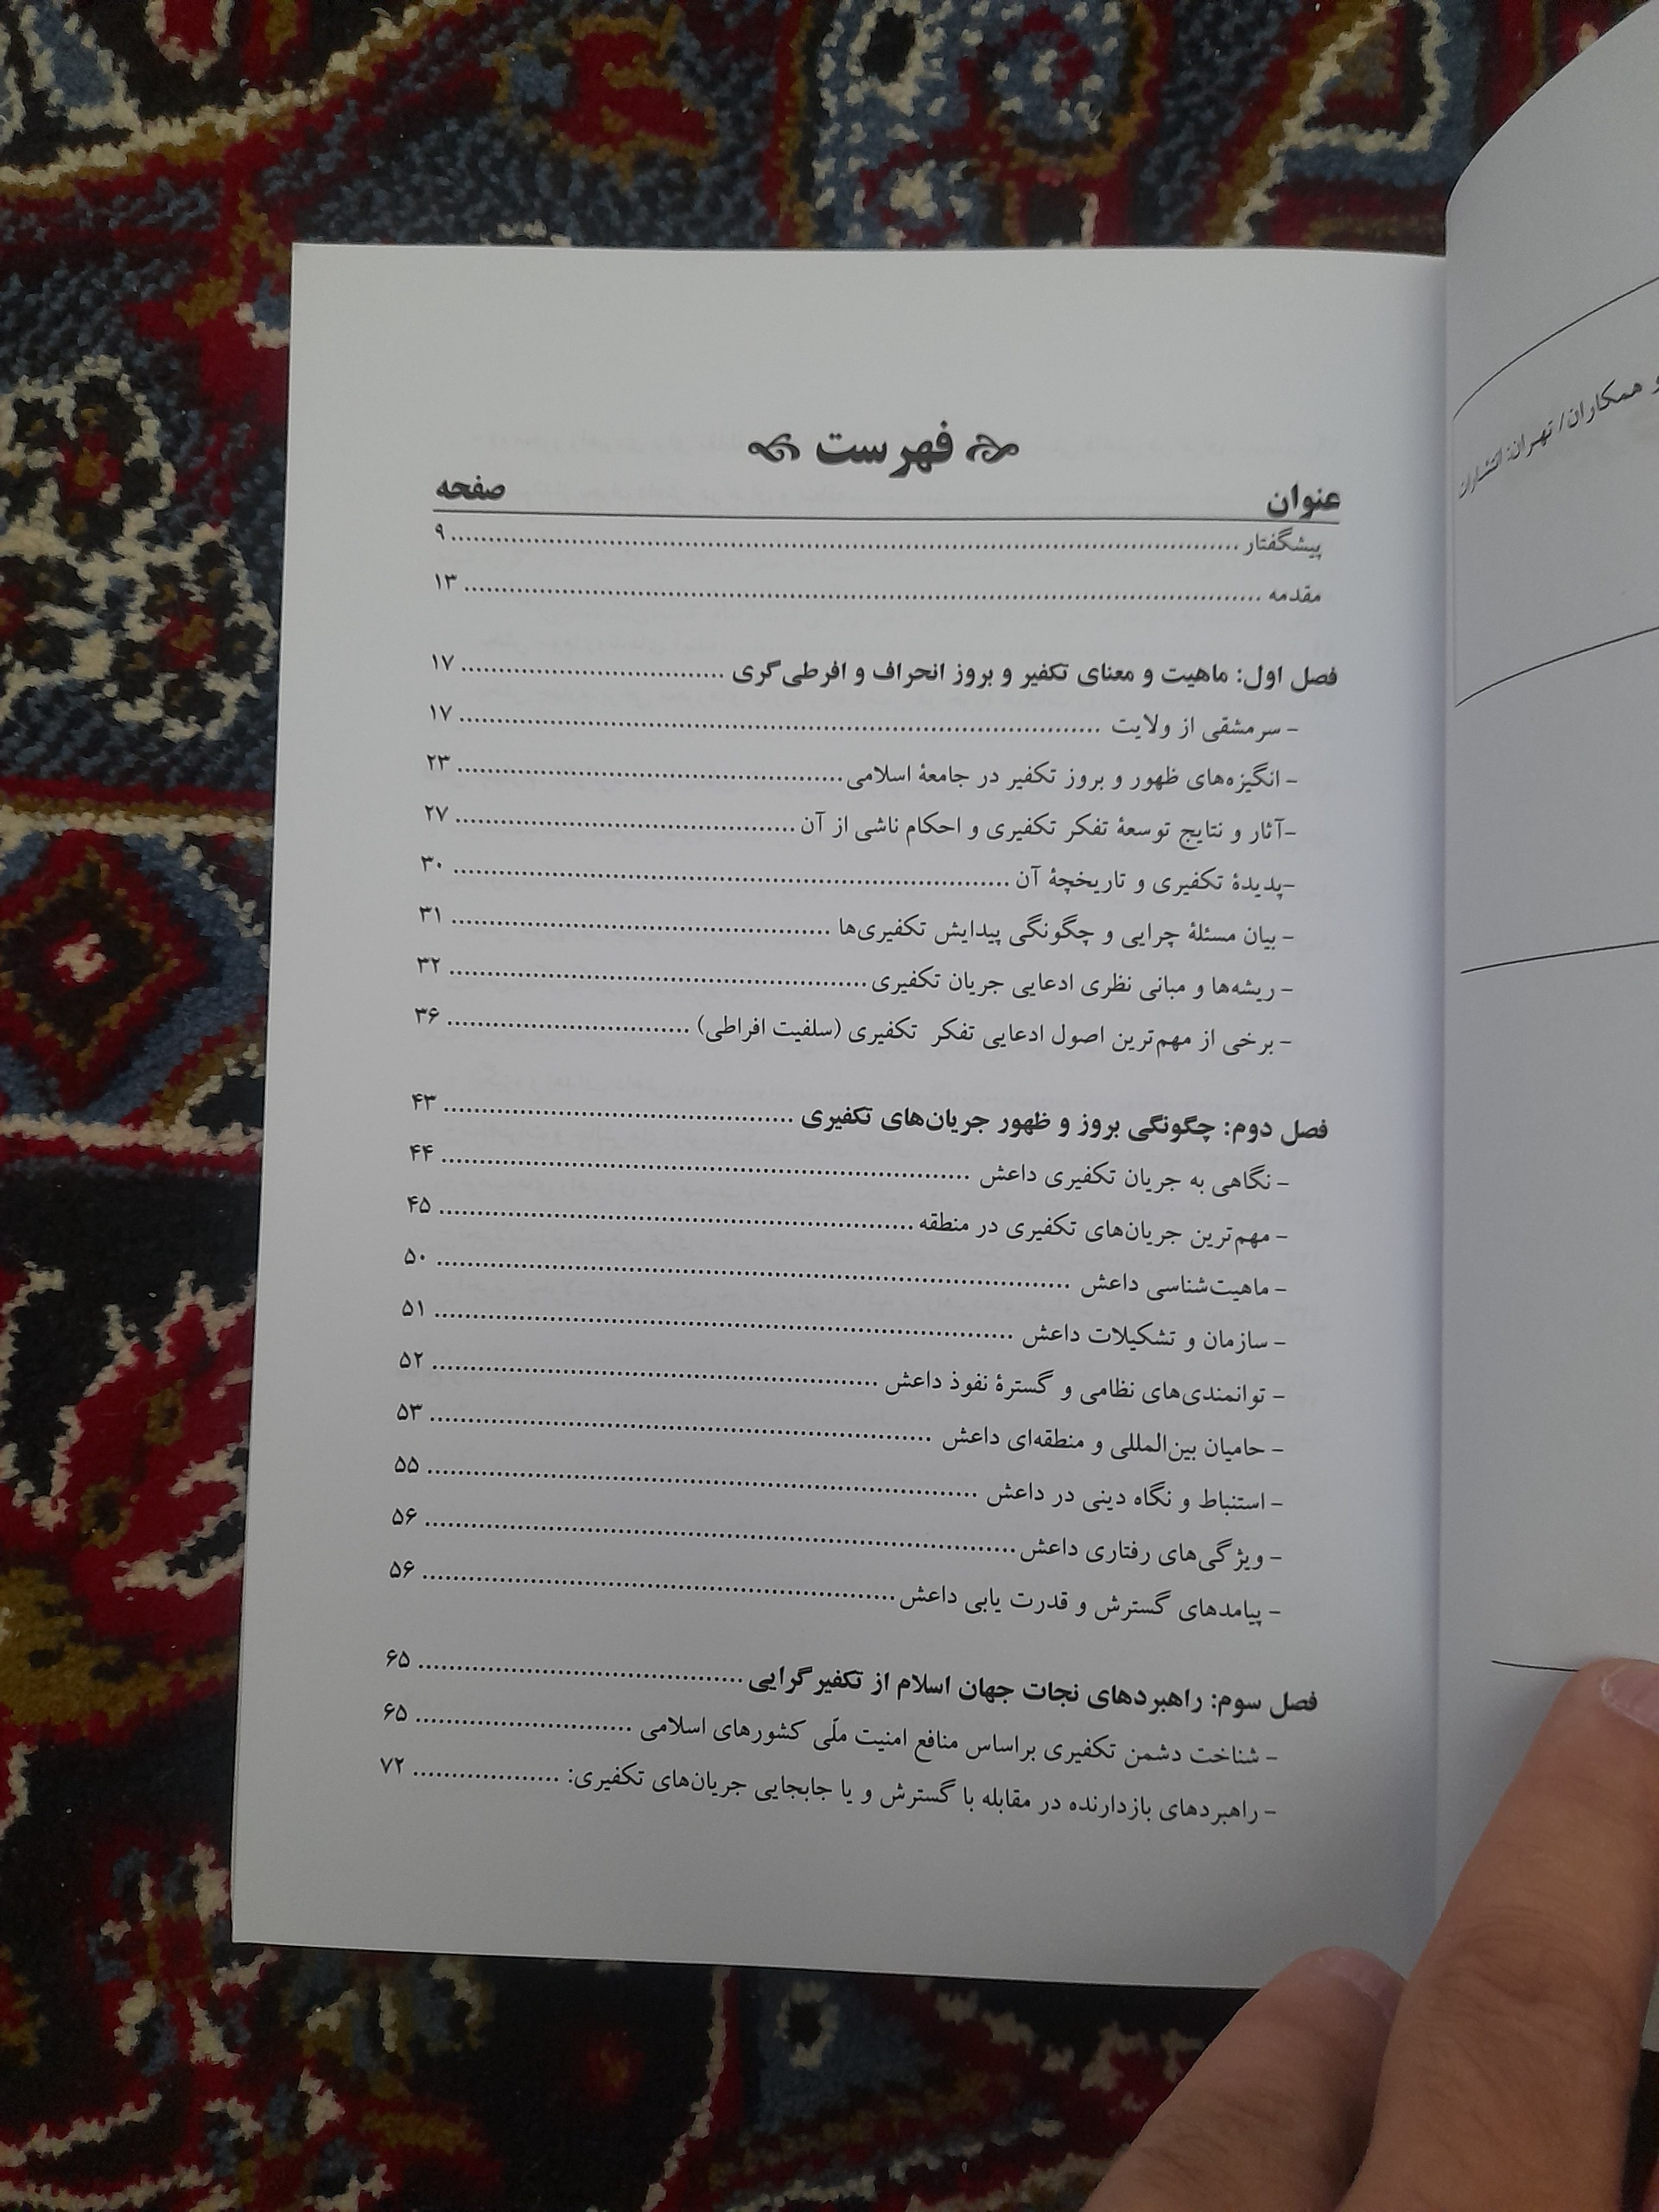 فهرست
عنوان صفحه
پیشگفتار ........ ۹
مقدمه ........ ۱۳
فصل اول: ماهیت و معنای تکفیر و بروز انحراف و افرطی‌گری ........ ۱۷
- سرمشقی از ولایت ........ ۱۷
- انگیزه‌های ظهور و بروز تکفیر در جامعهٔ اسلامی ........ ۲۳
-آثار و نتایج توسعهٔ تفکر تکفیری و احکام ناشی از آن ........ ۲۷
-پدیدهٔ تکفیری و تاریخچهٔ آن ........ ۳۰
- بیان مسئلهٔ چرایی و چگونگی پیدایش تکفیری‌ها ........ ۳۱
- ریشه‌ها و مبانی نظری ادعایی جریان تکفیری ........ ۳۲
- برخی از مهم‌ترین اصول ادعایی تفکر تکفیری (سلفیت افراطی) ........ ۳۶
فصل دوم: چگونگی بروز و ظهور جریان‌های تکفیری ........ ۴۳
- نگاهی به جریان تکفیری داعش ........ ۴۴
- مهم‌ترین جریان‌های تکفیری در منطقه ........ ۴۵
- ماهیت‌شناسی داعش ........ ۵۰
- سازمان و تشکیلات داعش ........ ۵۱
- توانمندی‌های نظامی و گسترهٔ نفوذ داعش ........ ۵۲
- حامیان بین‌المللی و منطقه‌ای داعش ........ ۵۳
- استنباط و نگاه دینی در داعش ........ ۵۵
- ویژگی‌های رفتاری داعش ........ ۵۶
- پیامدهای گسترش و قدرت یابی داعش ........ ۵۶
فصل سوم: راهبردهای نجات جهان اسلام از تکفیرگرایی ........ ۶۵
- شناخت دشمن تکفیری براساس منافع امنیت ملّی کشورهای اسلامی ........ ۶۵
- راهبردهای بازدارنده در مقابله با گسترش و یا جابجایی جریان‌های تکفیری: ........ ۷۲
و همکاران/ تهران: انتشارات